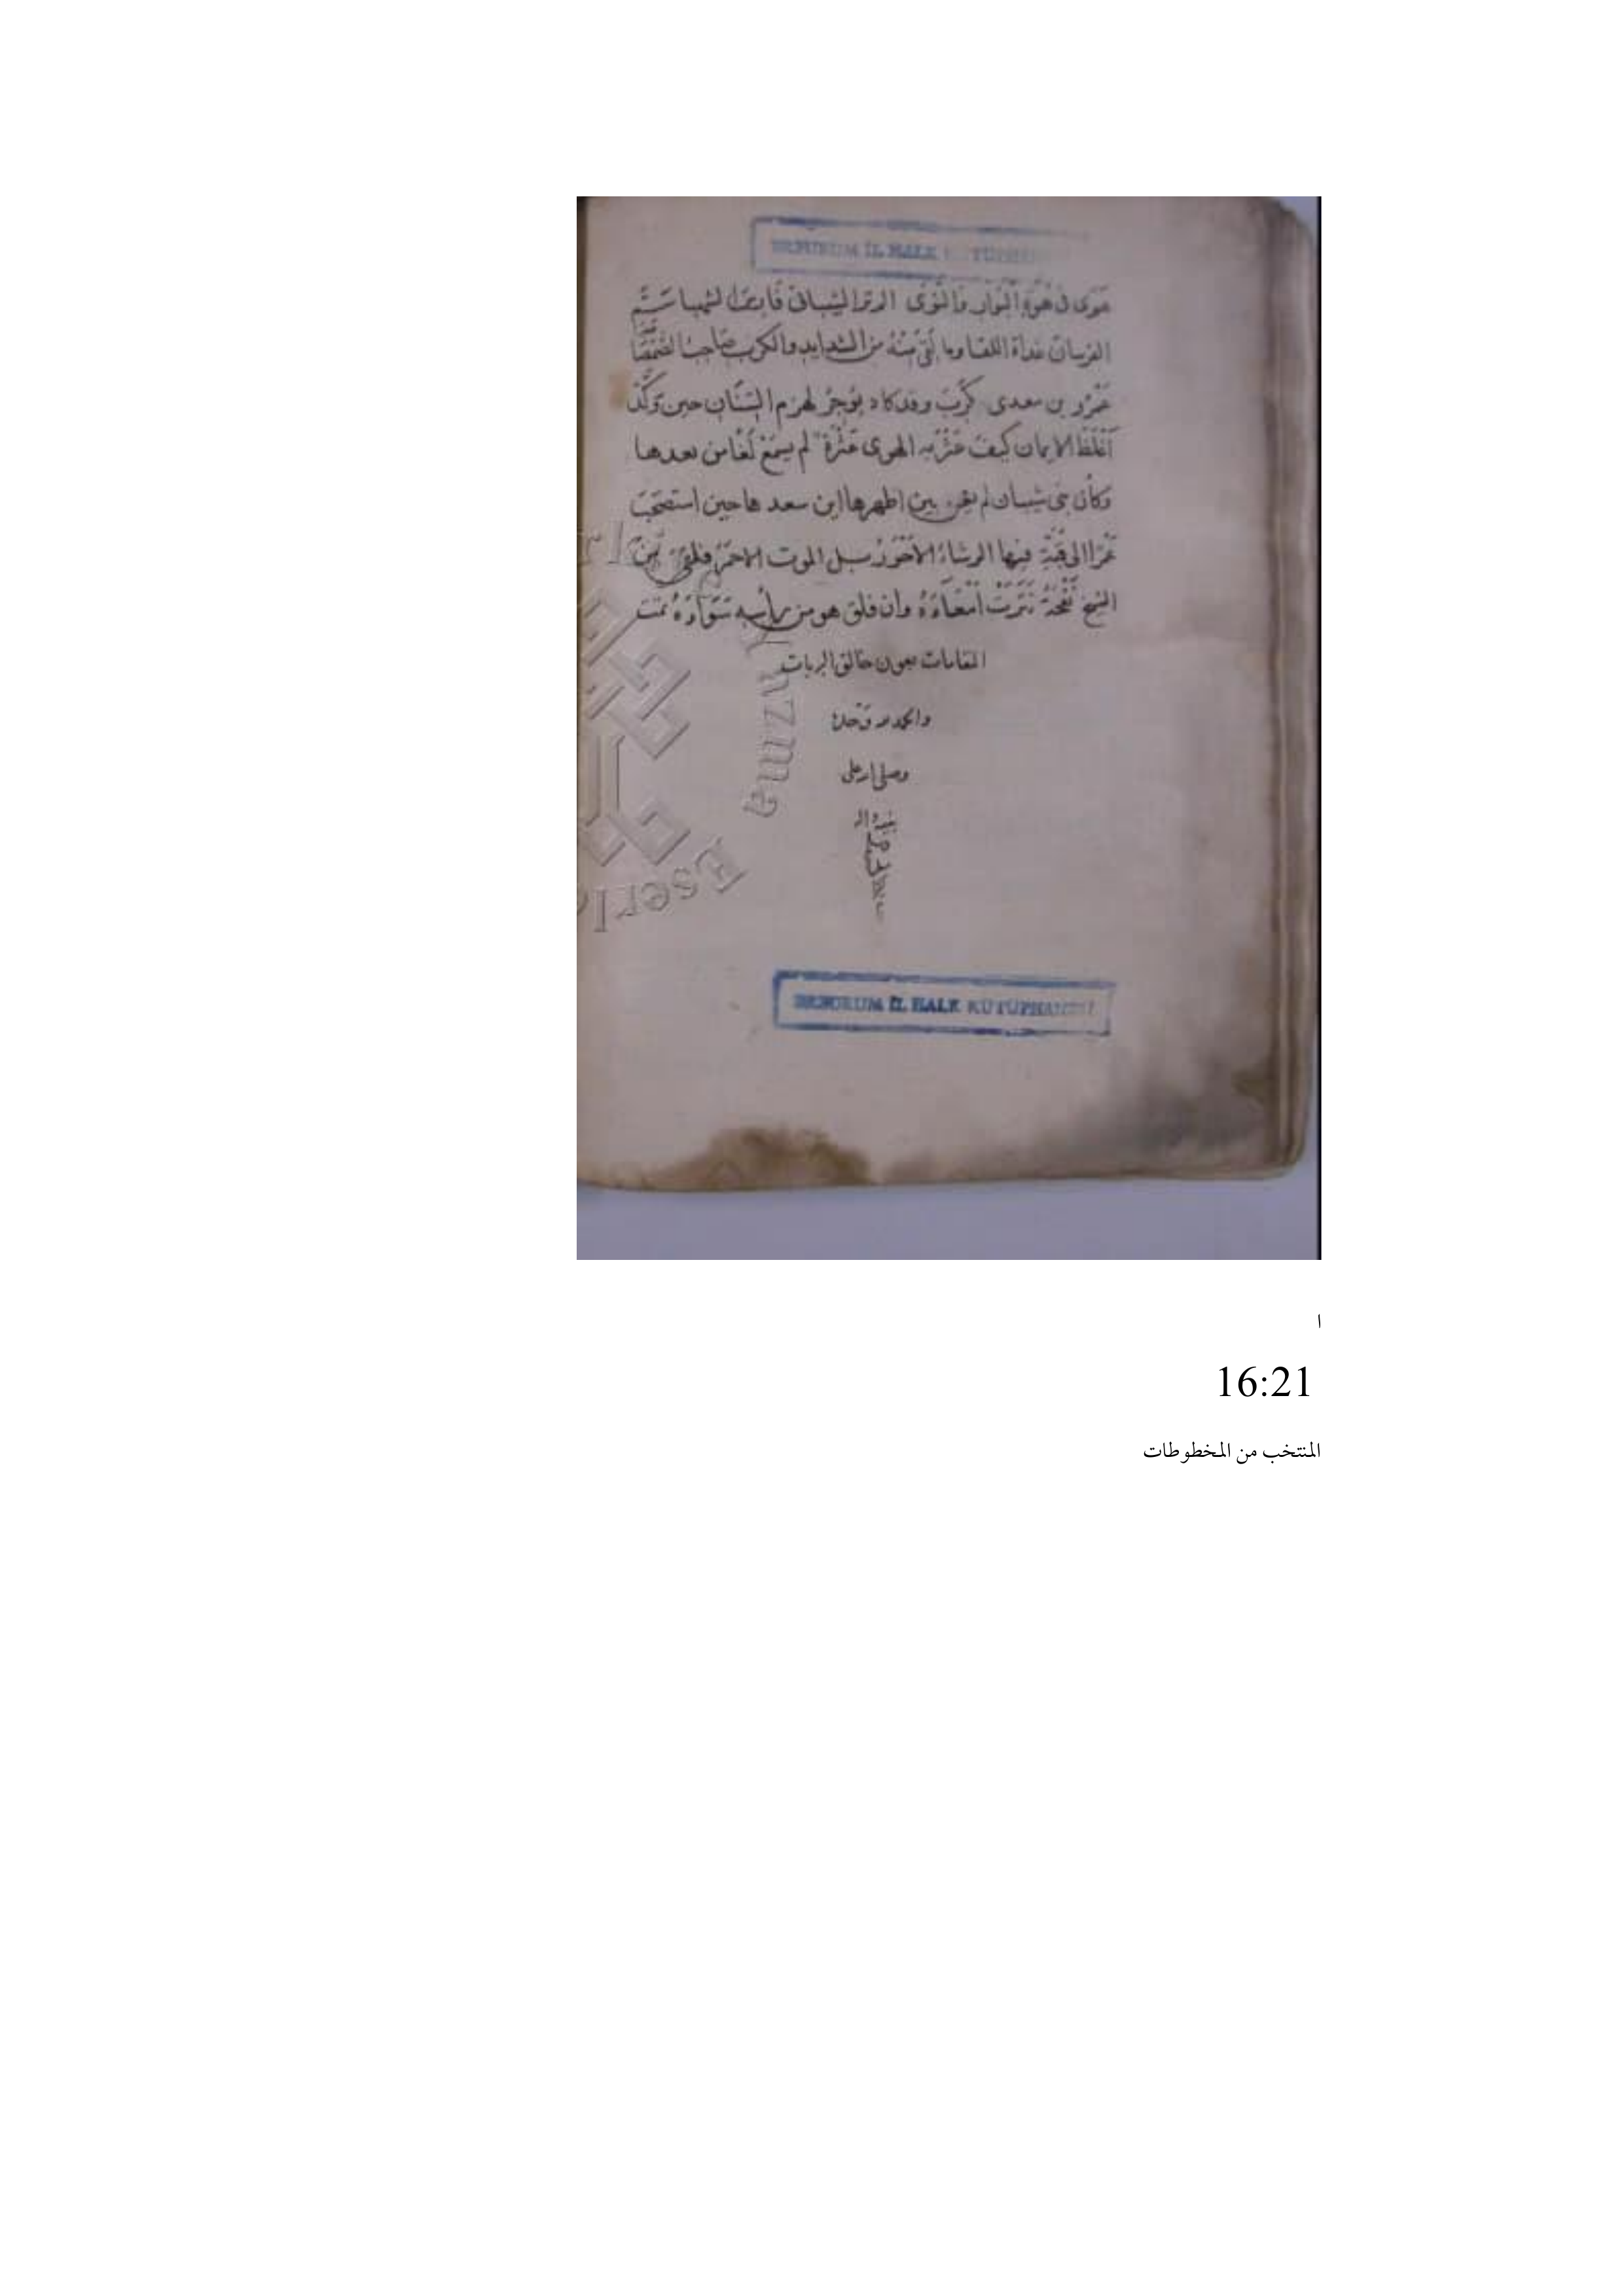 ERZURUM İL HALK KÜTÜPHANESİ
هَوَى في هُوَّةِ البَوَار وَالتَوَى الشيباني فارس الشهبا
الفرسان غداة اللقا وما لَقِىَ مِنْهُ من الشدايد والكرب صاحبُ الصَّمْصَامَة
عَمْرُو بن معدى كَرِبَ وقد كاد يُوجَرُ لهزم السِّنَان حين وَكَّدَ
أغْلَظَ الايمان كيف عَثَرَ به الهوى عَثْرَةً لم يسمع لَعًا من بعدها
وكأنّ بنى شيبان لم يبق بين اظهرها ابن سعدها حين استصحبَ
عَمْرًا الى قُبَّةٍ فيها الرشاءُ الاَحْوَرُ سبل الموت الاحمرُ فلقى مِنَ
الشيخ نَفْحَةً نَثَرَتْ أمْعَاءَهُ وان فلق هو من رأسه شَوَاءَهُ تمت
المقامات بعون خالق البريات
والحمد لله وَحْدَهُ
وصلى الله على
ERZURUM İL HALK KÜTÜPHANESİ
Yazma
Eserler
ا
16:21
المنتخب من المخطوطات